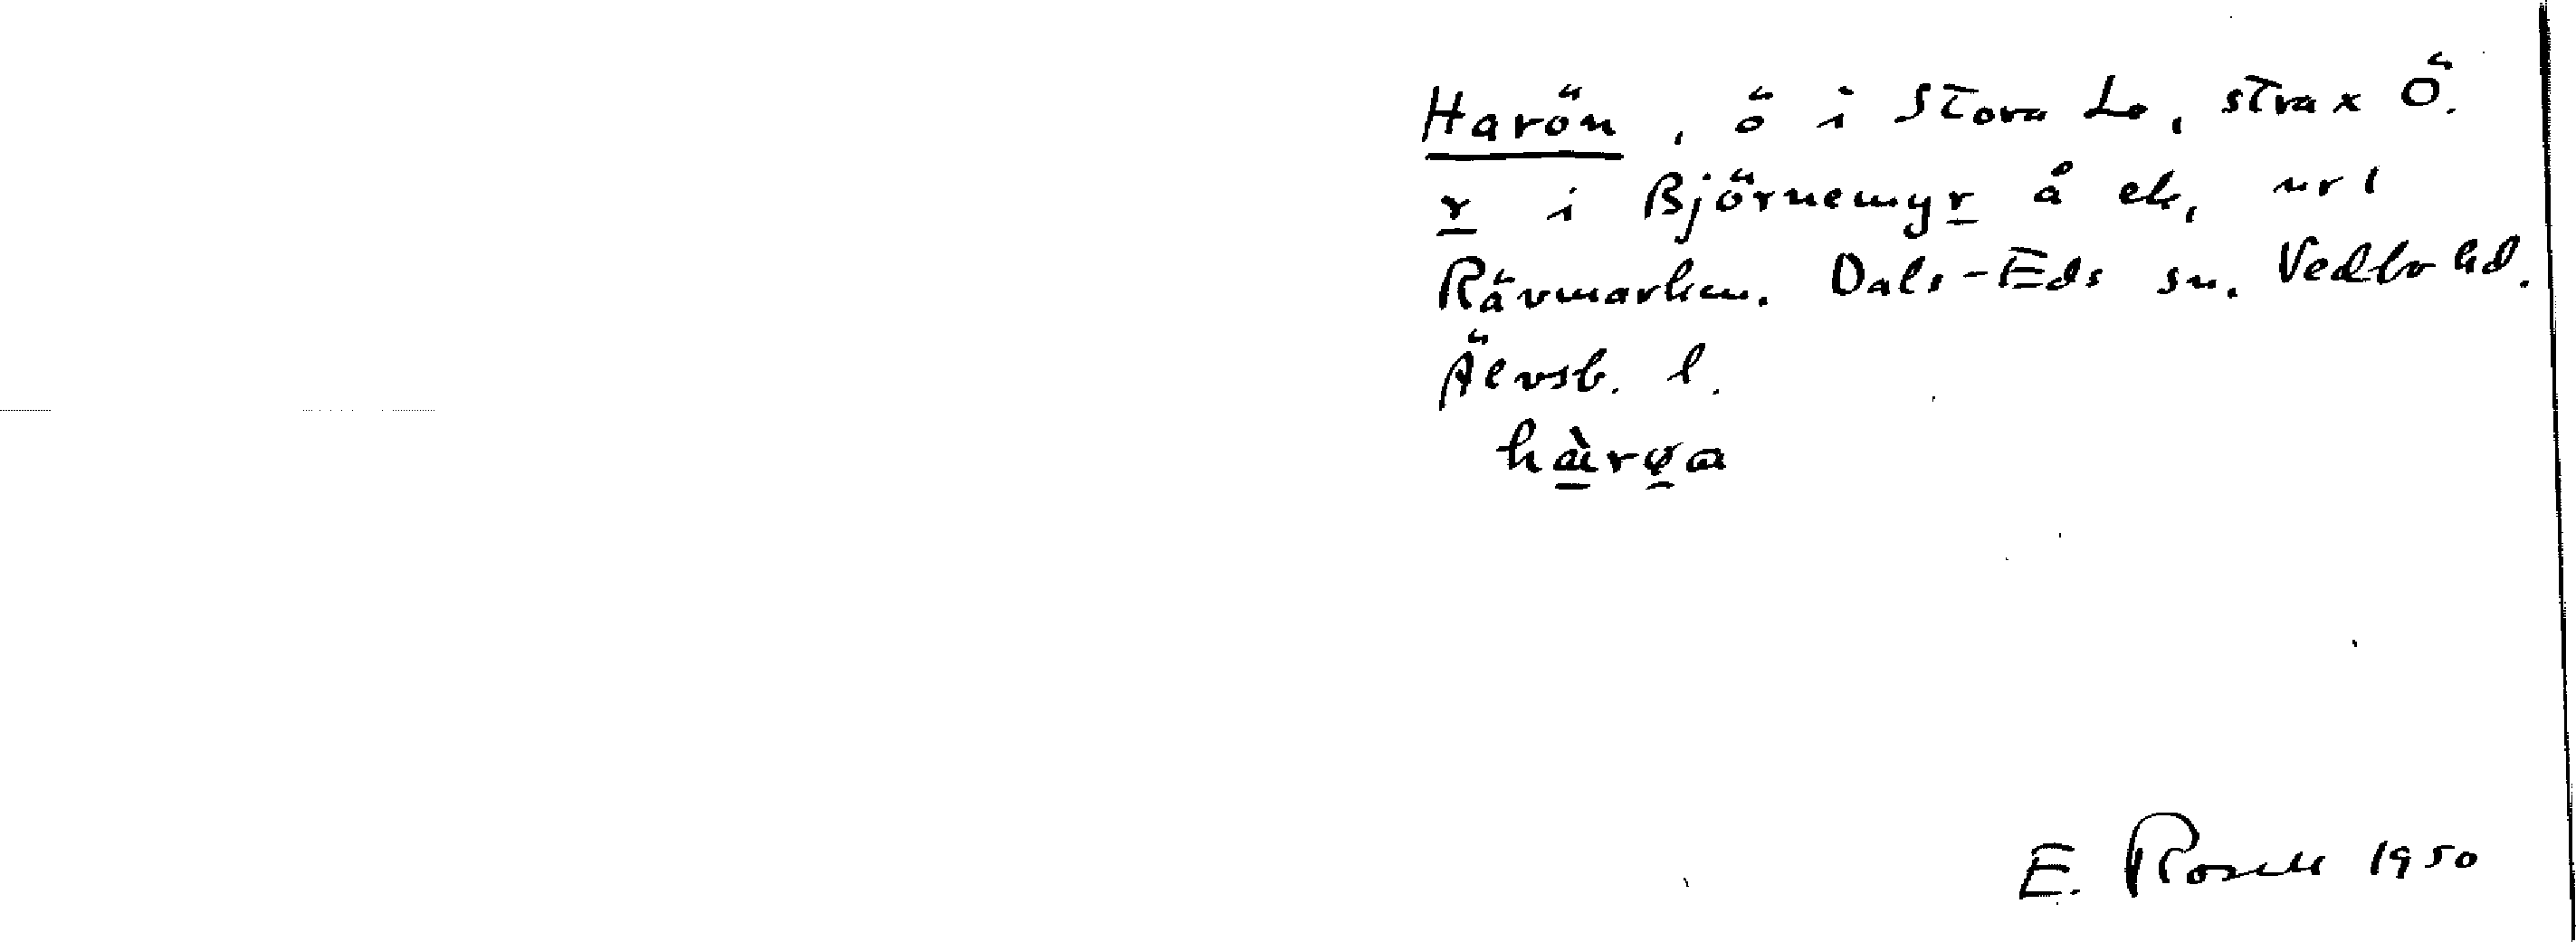 Harön, ö i Stora Le, strax Ö.
r i Björnemyr å ek, nr 1
Rävmarken. Dals-Eds sn. Vedbo hd.
Älvsb. l.
hàrøa
E. Rosell 1950